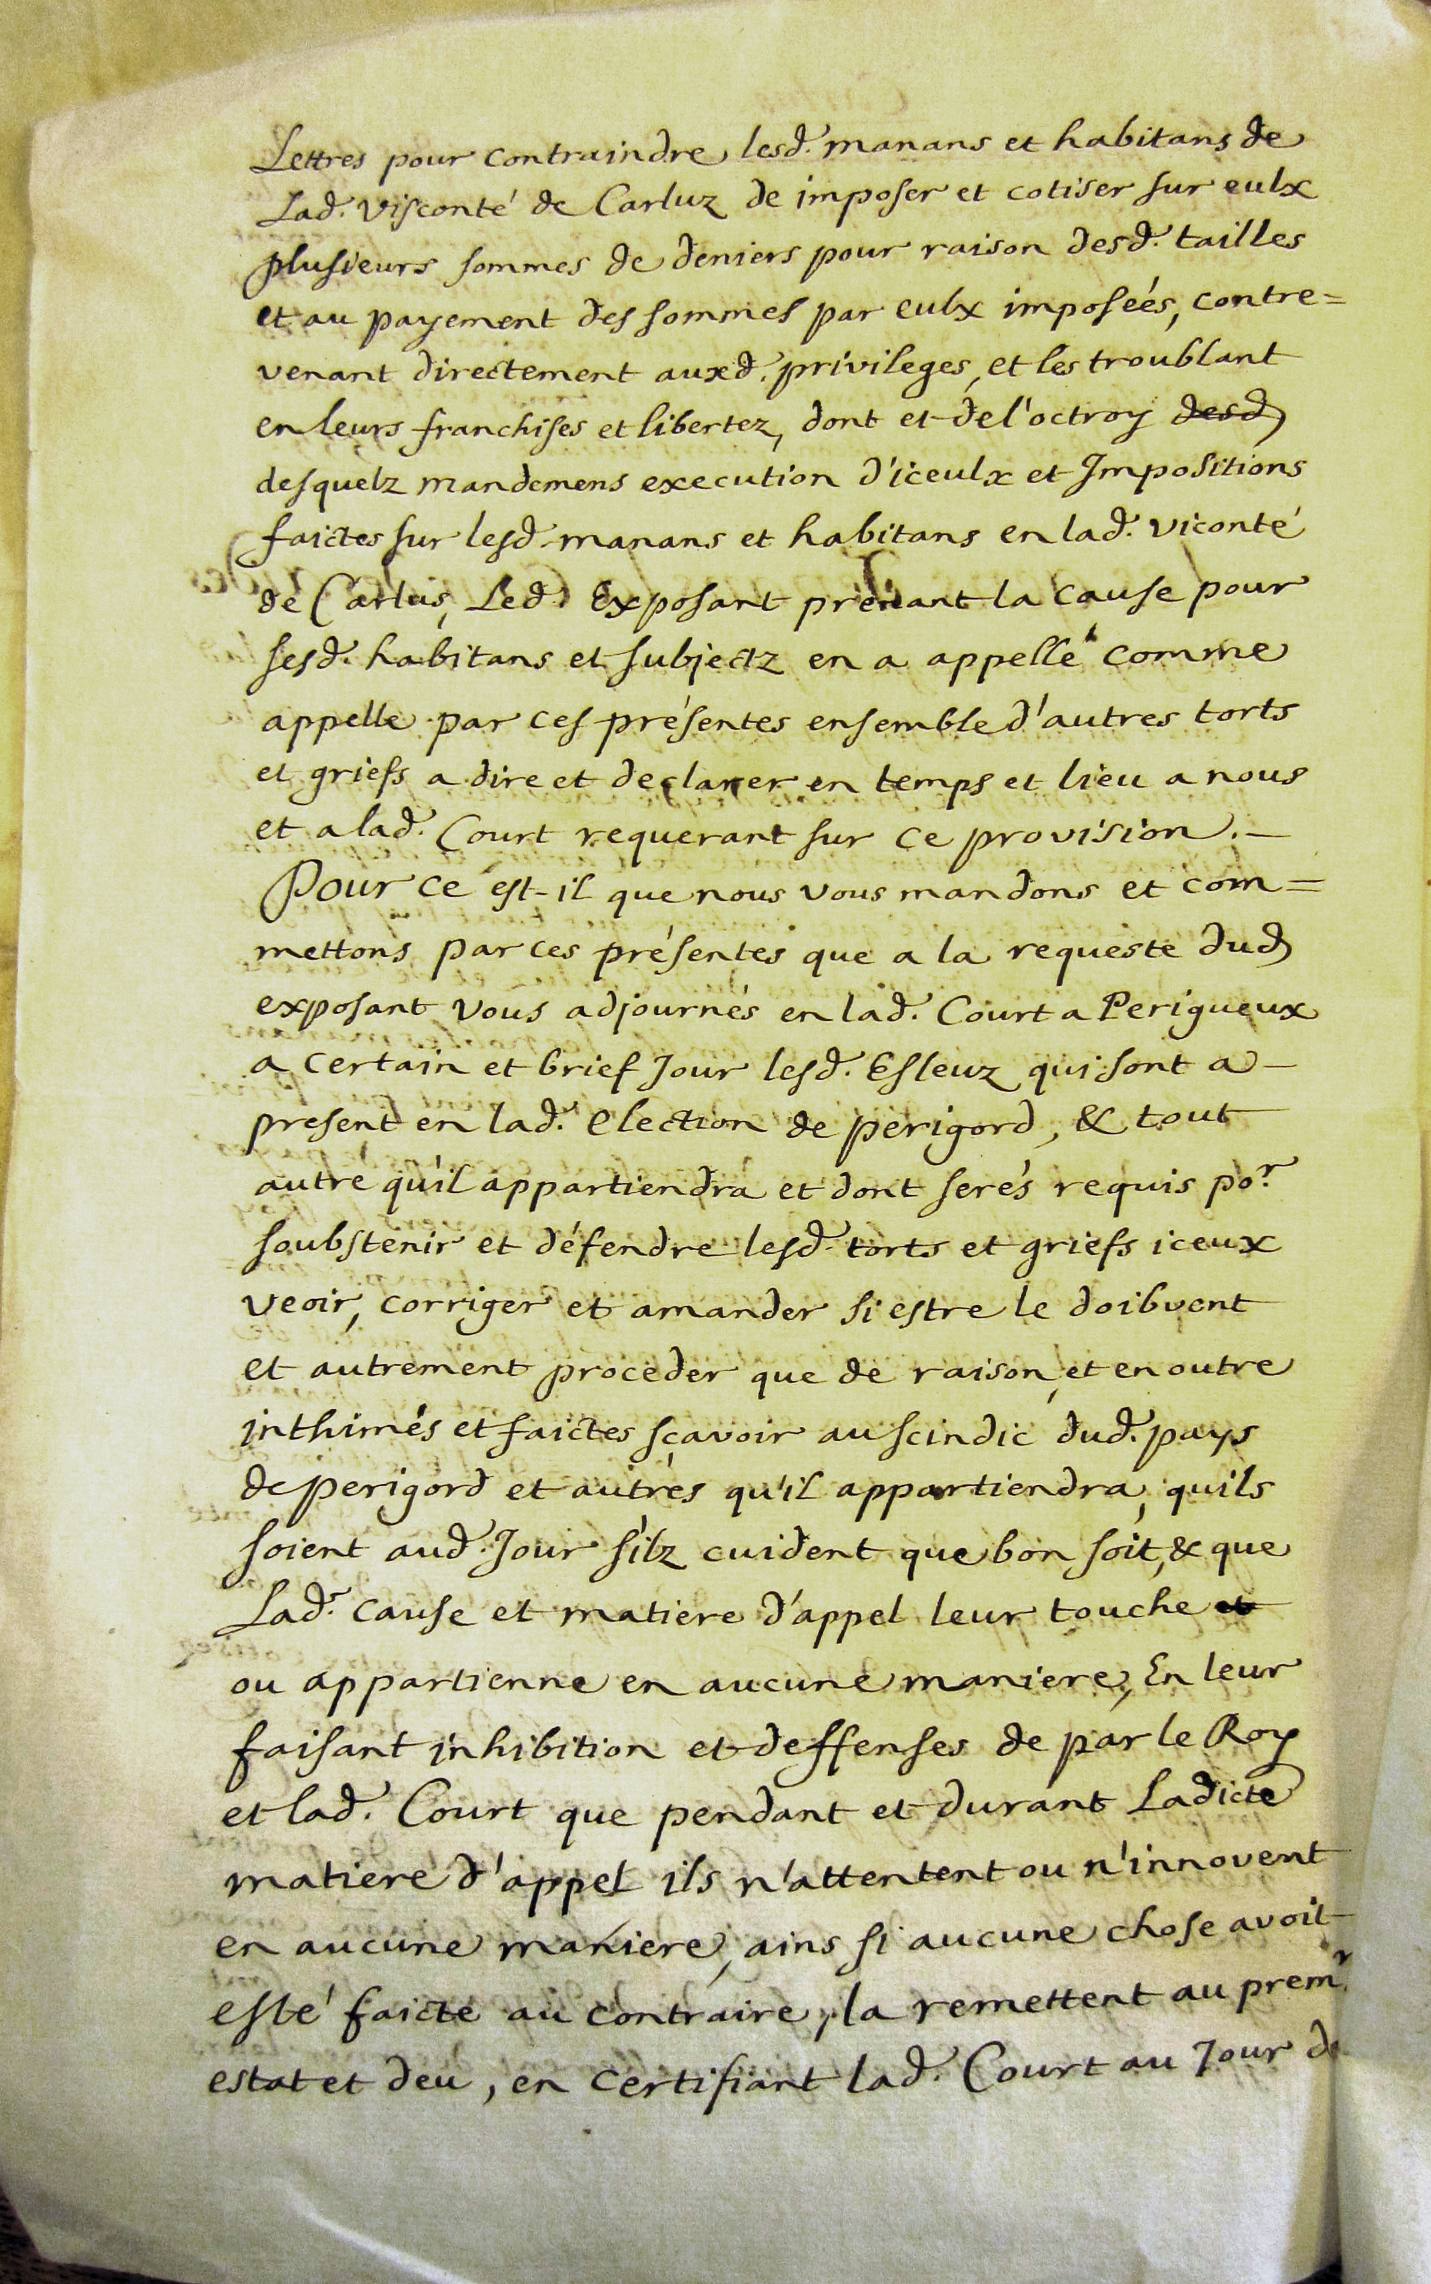 Lettres pour contraindre lesd. manans et habitans de
Lad. Visconté de Carluz de imposer et cotiser sur eulx
plusieurs sommes de deniers pour raison desd. tailles
et au payement des sommes par eulx imposéés, contre=
venant directement auxd. privileges, et les troublant
en leurs franchises et libertez, dont et de l'octroy desd
desquelz mandemens execution d'iceulx et Impositions
faictes sur lesd. manans et habitans en lad. viconté
de Carlus, Led. Exposant prenant la cause pour
sesd. habitans et subjectz en a appellé comme
appelle par ces présentes ensemble d'autres torts
et griefs a dire et declarer en temps et lieu a nous
et a lad. Court requerant sur ce provision. —
Pour ce est-il que nous vous mandons et com=
mettons par ces présentes que a la requeste dud
exposant vous adjournés en lad. Court a Perigueux
a certain et brief Jour lesd. Esleuz qui sont a —
present en lad. election de perigord, & tout
autre qu'il appartiendra et dont serés requis por.
soubstenir et défendre lesd. torts et griefs iceux
veoir, corriger et amander si estre le doibvent
et autrement proceder que de raison, et en outre
inthimés et faictes sçavoir au scindic dud. pays
de perigord et autres qu'il appartiendra, quils
soient aud. Jour s'ilz cuident que bon soit, & que
Lad. cause et matiere d'appel leur touche et
ou appartienne en aucune maniere, En leur
faisant inhibition et deffenses de par le Roy
et lad. Court que pendant et durant Ladicte
matiere d'appel ils n'attentent ou n'innovent
en aucune maniere, ains si aucune chose avoit
esté faicte au contraire, la remettent au premr.
estat et deu, en certifiant lad. Court au Jour de